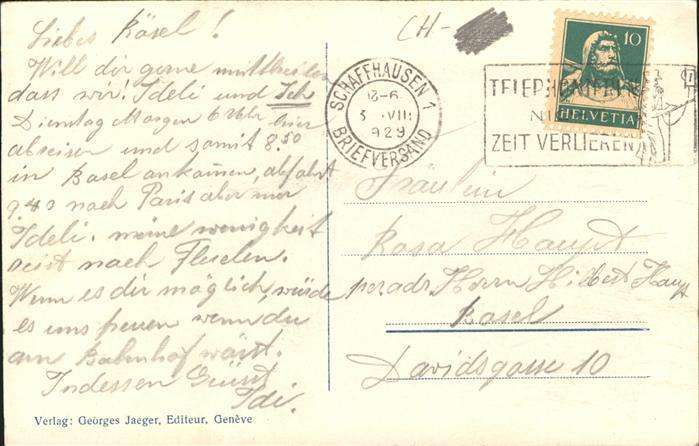 CH-
Liebes Rösel!
Will dir gerne mitteilen
dass wir. Ideli und Ich
Dienstag Morgen 6 Uhr hier
abreisen und somit 8.50
in Basel ankomen, abfahrt
9.40 nach Paris aber nur
Ideli. meine wenigkeit
reist nach Flüelen.
Wenn es dir möglich, würde
es uns freuen wenn du
am Bahnhof wärst.
Indessen Grüsst
Idi.
Verlag: Georges Jaeger, Editeur, Genève
SCHAFFHAUSEN 1
18-6
3 VIII
929
BRIEFVERSAND
10
HELVETIA
TELEPHONIEREN
ZEIT VERLIEREN
Fräulein
Rosa Haupt
per adr. Herrn Haupt
Basel
Davidsgasse 10